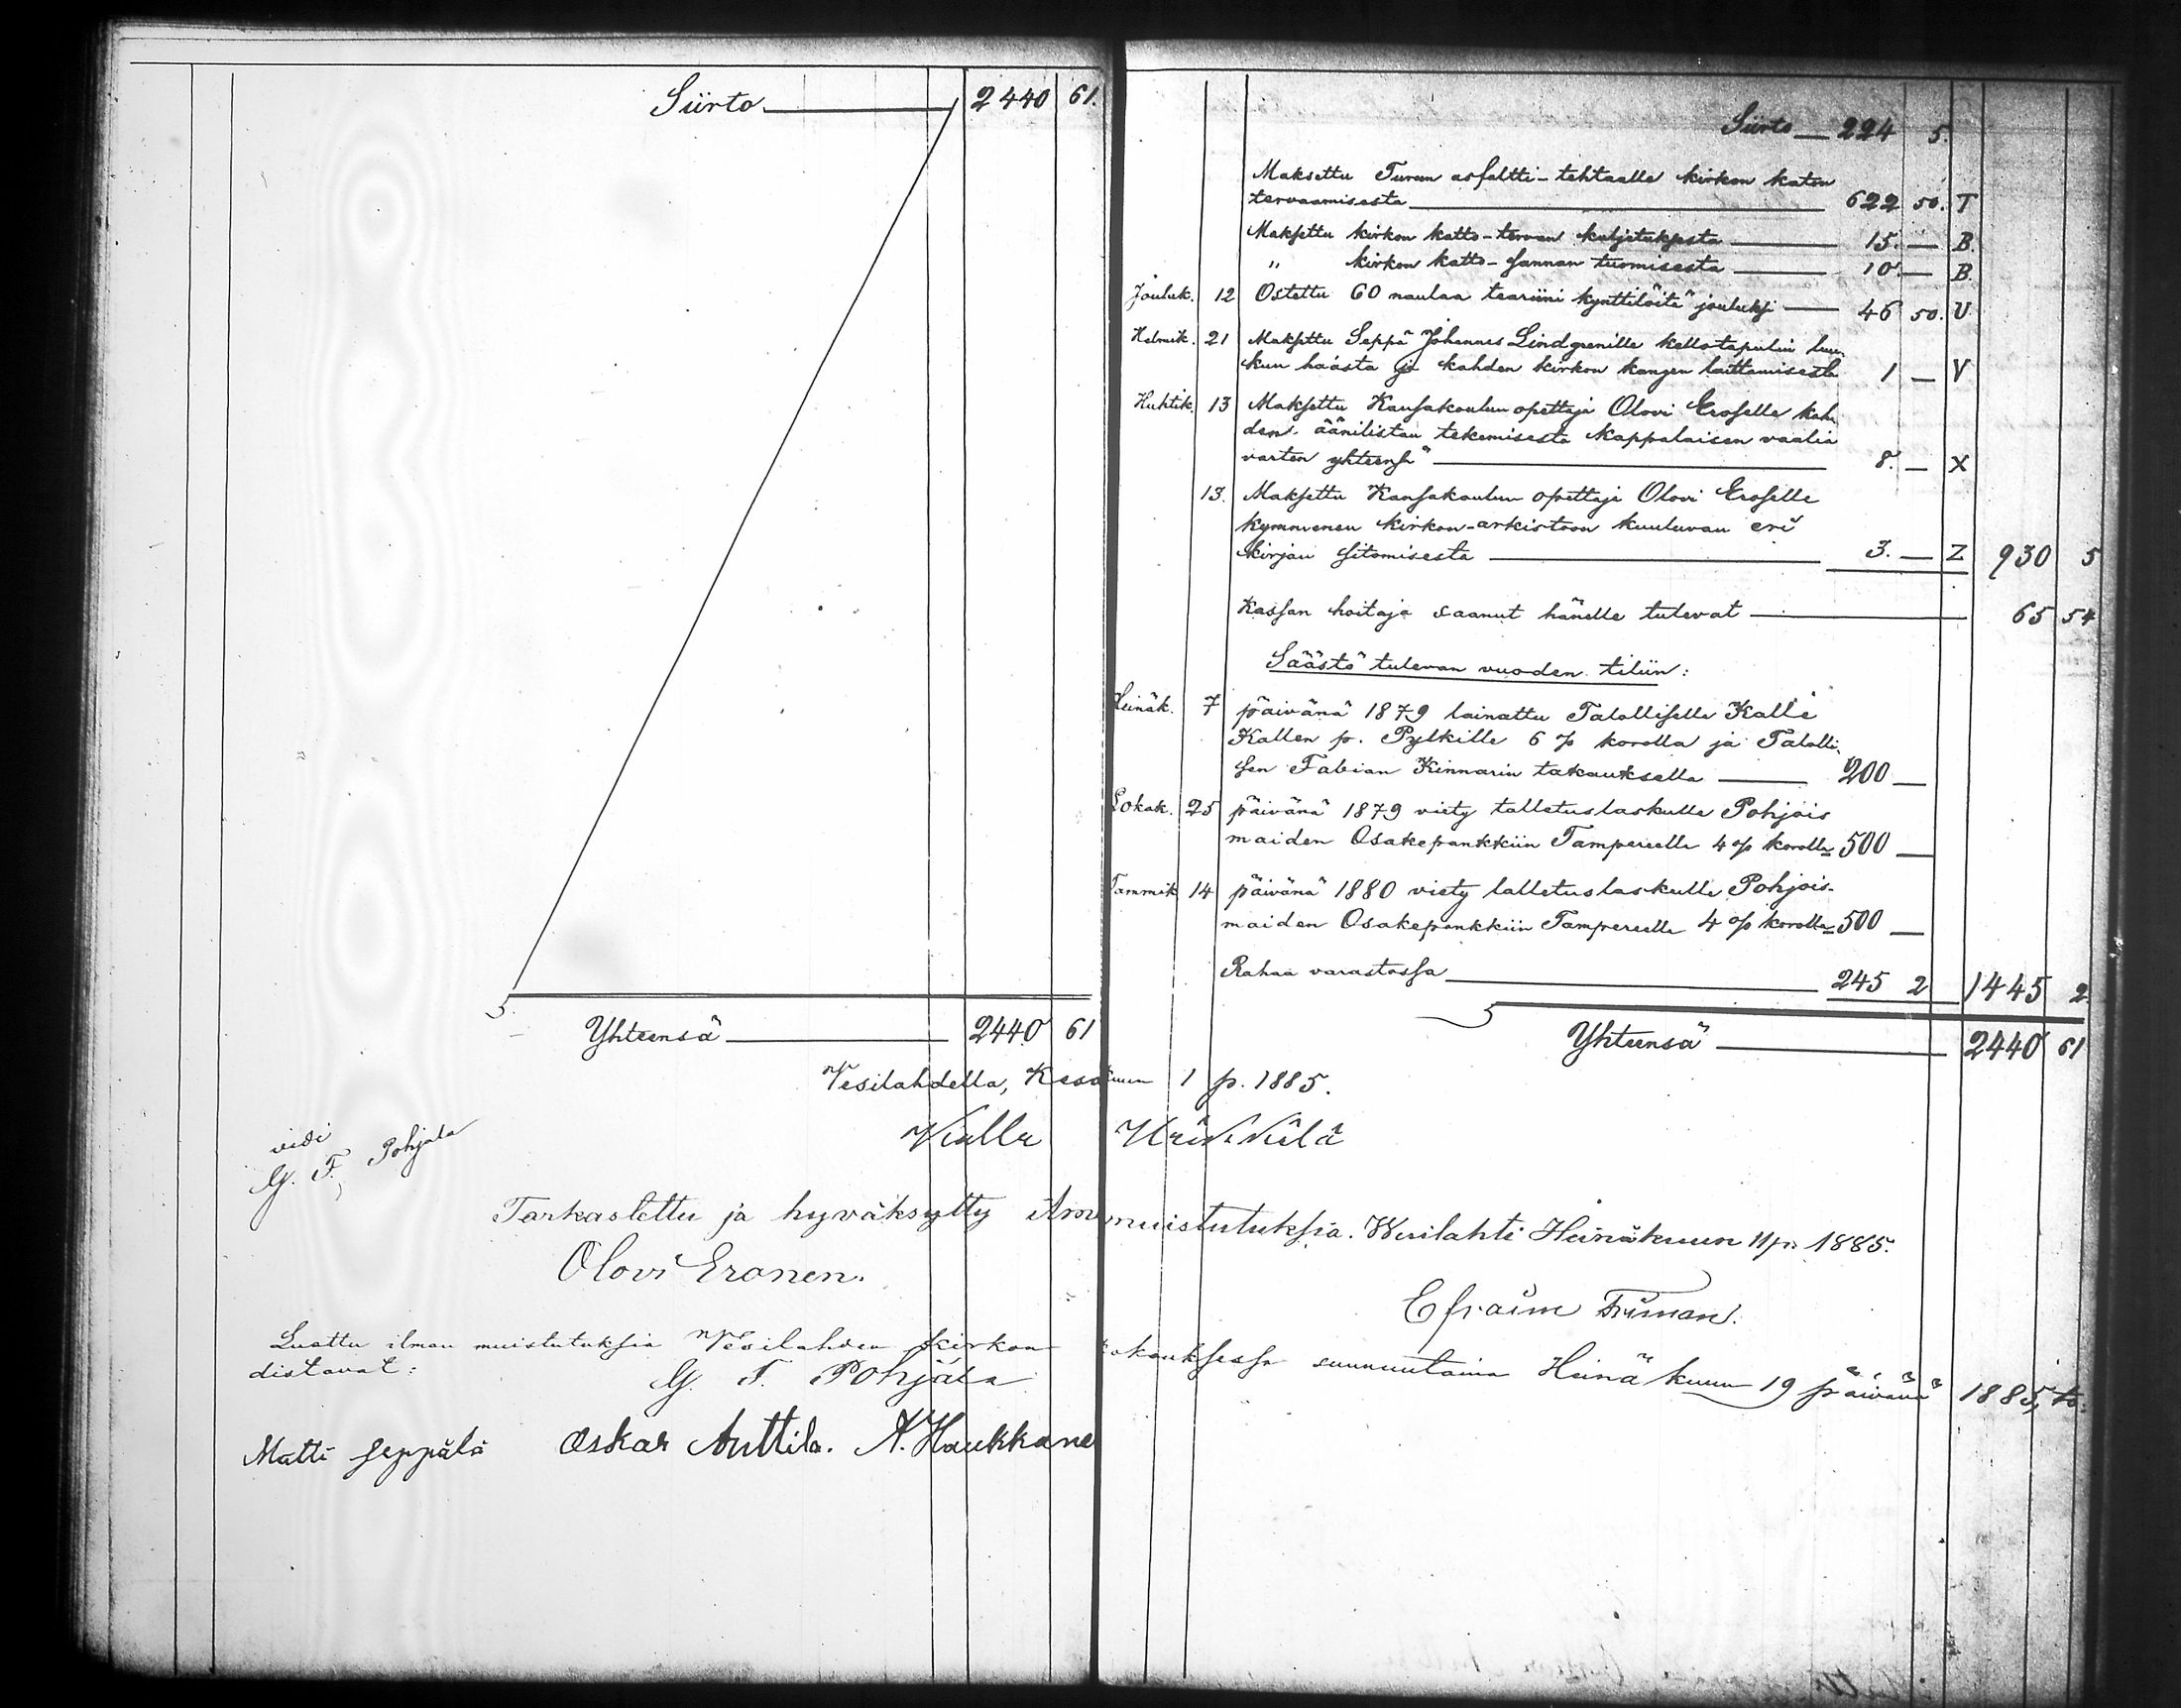 Siirto 2440 61.
Siirto 224 5.
Maksettu Turun asfaltti-tehtaalle kirkon katon
tervaamisesta 622 50. T
Maksettu kirkon katto-tervan kuljetuksesta 15. — B.
" kirkon katto-sannan tuomisesta 10 — B.
Jouluk. 12 Ostettu 60 naulaa teariini kynttilöitä jouluksi 46 50. U
Helmik. 21 Maksettu Seppä Johannes Lindgrenille kellotapulin luu-
kun haásta ja kahden kirkon kangen laittamisesta 1 — V
Huhtik. 13 Maksettu Kansakoulun opettaja Olovi Eroselle kah-
den äänilistan tekemisestä Kappalaisen vaalia
varten yhteensä 8. — X
13. Maksettu Kansakoulun opettaja Olovi Eroselle
kymmenen kirkon-arkistoon kuuluvan eri
kirjan sitomisesta 3. — Z 930 5
Kassan hoitaja saanut hänelle tulevat 65 54
Säästö tulevan vuoden tiliin:
Heinäk. 7 päivänä 1879 lainattu Talolliselle Kalle
Kallen p. Pylkille 6 % korolla ja Talolli-
sen Fabian Kinnarin takauksella 200 —
Lokak. 25 päivänä 1879 viety talletuslaskulle Pohjois
maiden Osakepankkiin Tampereelle 4 % korolla 500 —
Tammik. 14 päivänä 1880 viety talletuslaskulle Pohjois-
maiden Osakepankkiin Tampereelle 4 % korolla 500 —
Rahaa varastossa 245 2 1445 2.
Yhteensä 2440 61
Yhteensä 2440 61
Vesilahdella, Kesäkuun 1 p. 1885.
Kalle Heikkilä
vidi
G. F. Pohjala
Tarkastettu ja hyväksytty muistutuksia. Wesilahti Heinäkuun 11 p. 1885.
Olovi Eronen.
Efraim
Luettu ilman muistutuksia Vesilahden kirkon kokouksessa sunnuntaina Heinäkuun 19 päivänä 1885, to-
distavat:
G. F. Pohjala
Matti Seppälä Oskar Anttila. K. Haukkane